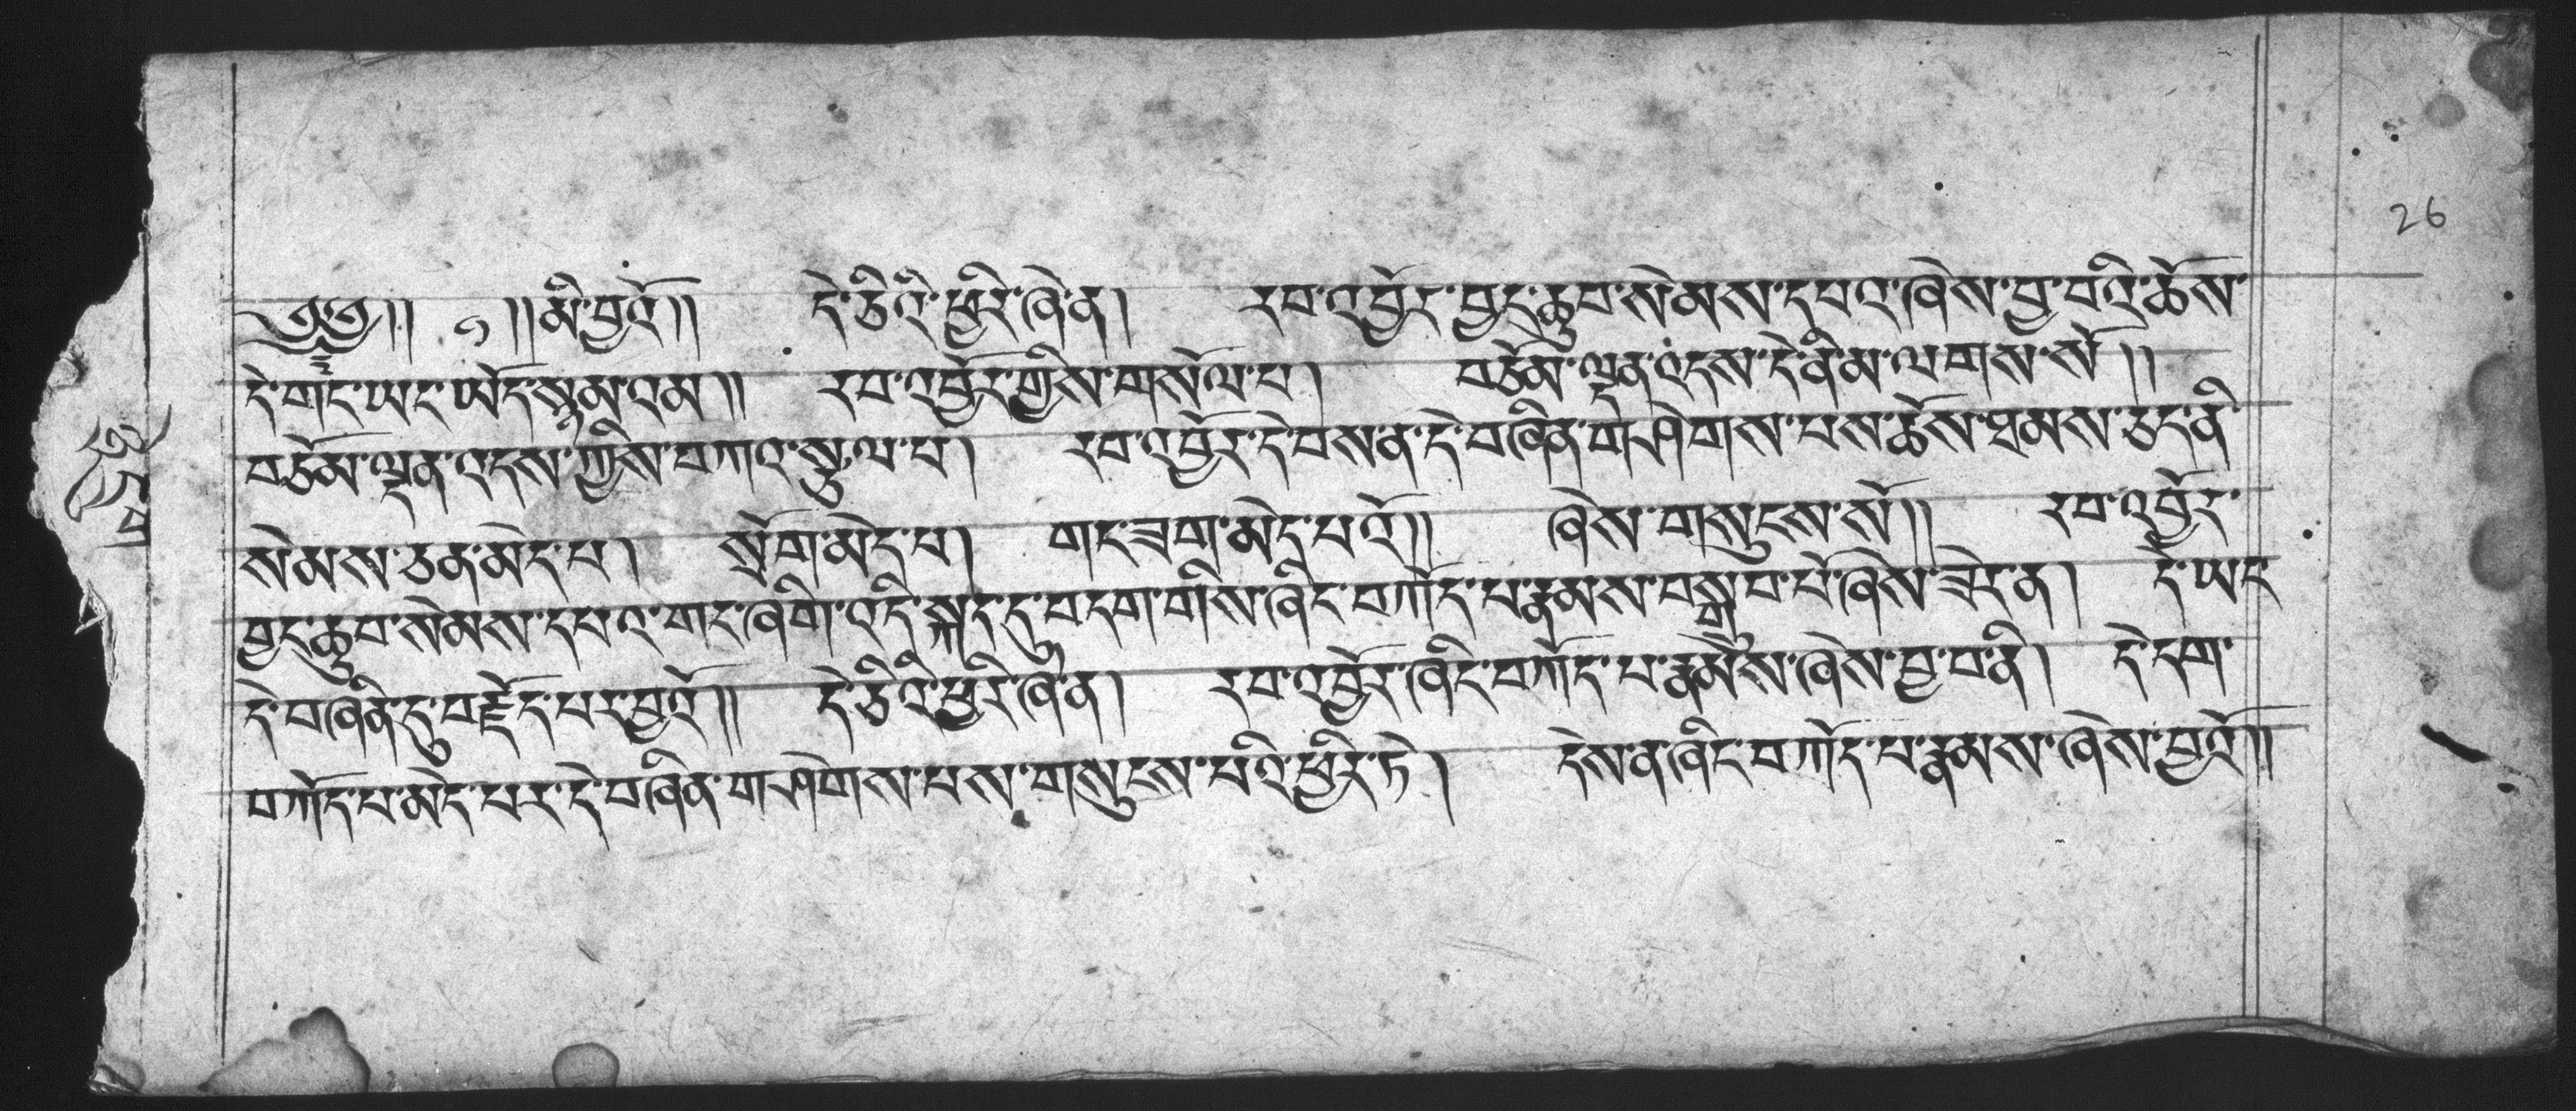 ༄༅།། ༡ །།མི་བྱའོ།། དེ་ཅིའི་ཕྱིར་ཞེ་ན། རབ་འབྱོར་བྱང་ཆུབ་སེམས་དཔའ་ཞེས་བྱ་བའི་ཆོས་
དེ་གང་ཡང་ཡོད་སྙམ་འམ།། རབ་འབྱོར་གྱིས་གསོལ་པ། བཅོམ་ལྡན་འདས་དེ་ནི་མ་ལགས་སོ།།
བཅོམ་ལྡན་འདས་ཀྱིས་བཀའ་སྩལ་པ། རབ་འབྱོར་དེ་བས་ན་དེ་བཞིན་གཤེགས་པས་ཆོས་ཐམས་ཅད་ནི་
སེམས་ཅན་མེད་པ། སྲོག་མེད་པ། གང་ཟག་མེད་པའོ།། ཞེས་གསུངས་སོ།། རབ་འབྱོར་
བྱང་ཆུབ་སེམས་དཔའ་གང་ཞིག་འདི་སྐད་དུ་བདག་གིས་ཞིང་བཀོད་པ་རྣམས་བསྒྲུབ་པོ་ཞེས་ཟེར་ན། དེ་ཡང་
དེ་བཞིན་དུ་བརྗོད་པར་བྱའོ།། དེ་ཅིའི་ཕྱིར་ཞེ་ན། རབ་འབྱོར་ཞིང་བཀོད་པ་རྣམས་ཞེས་བྱ་བ་ནི། དེ་དག་
བཀོད་པ་མེད་པར་དེ་བཞིན་གཤེགས་པས་གསུངས་པའི་ཕྱིར་ཏེ། དེས་ན་ཞིང་བཀོད་པ་རྣམས་ཞེས་བྱའོ།།
26